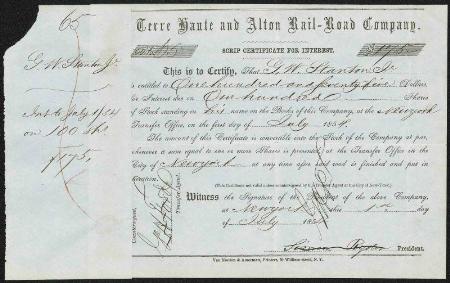 65
G. W. Stanton Jr
Int to July 1/54
on 100 shs
$175,
Terre Haute and Alton Rail-Road Company.
No. 65
$175
SCRIP CERTIFICATE FOR INTEREST.
This is to Certify, That G. W. Stanton Jr
is entitled to One hundred and seventy five Dollars,
for Interest due on One hundred Shares
of Stock standing in his name on the Books of this Company, at the New York
Transfer Office, on the first day of July 1854.
The amount of this Certificate is convertible into the Stock of the Company at par,
whenever a sum equal to one or more Shares is presented at the Transfer Office in the
City of New York at any time after said road is finished and put in
operation.
(This Certificate not valid unless countersigned by the Transfer Agent of the City of New-York.)
Witness the Signature of the President of the above Company,
at New York this 1st day
of July 1854
President.
Countersigned,
Transfer Agent.
Van Norden & Amerman, Printers, 60 William-street, N. Y.